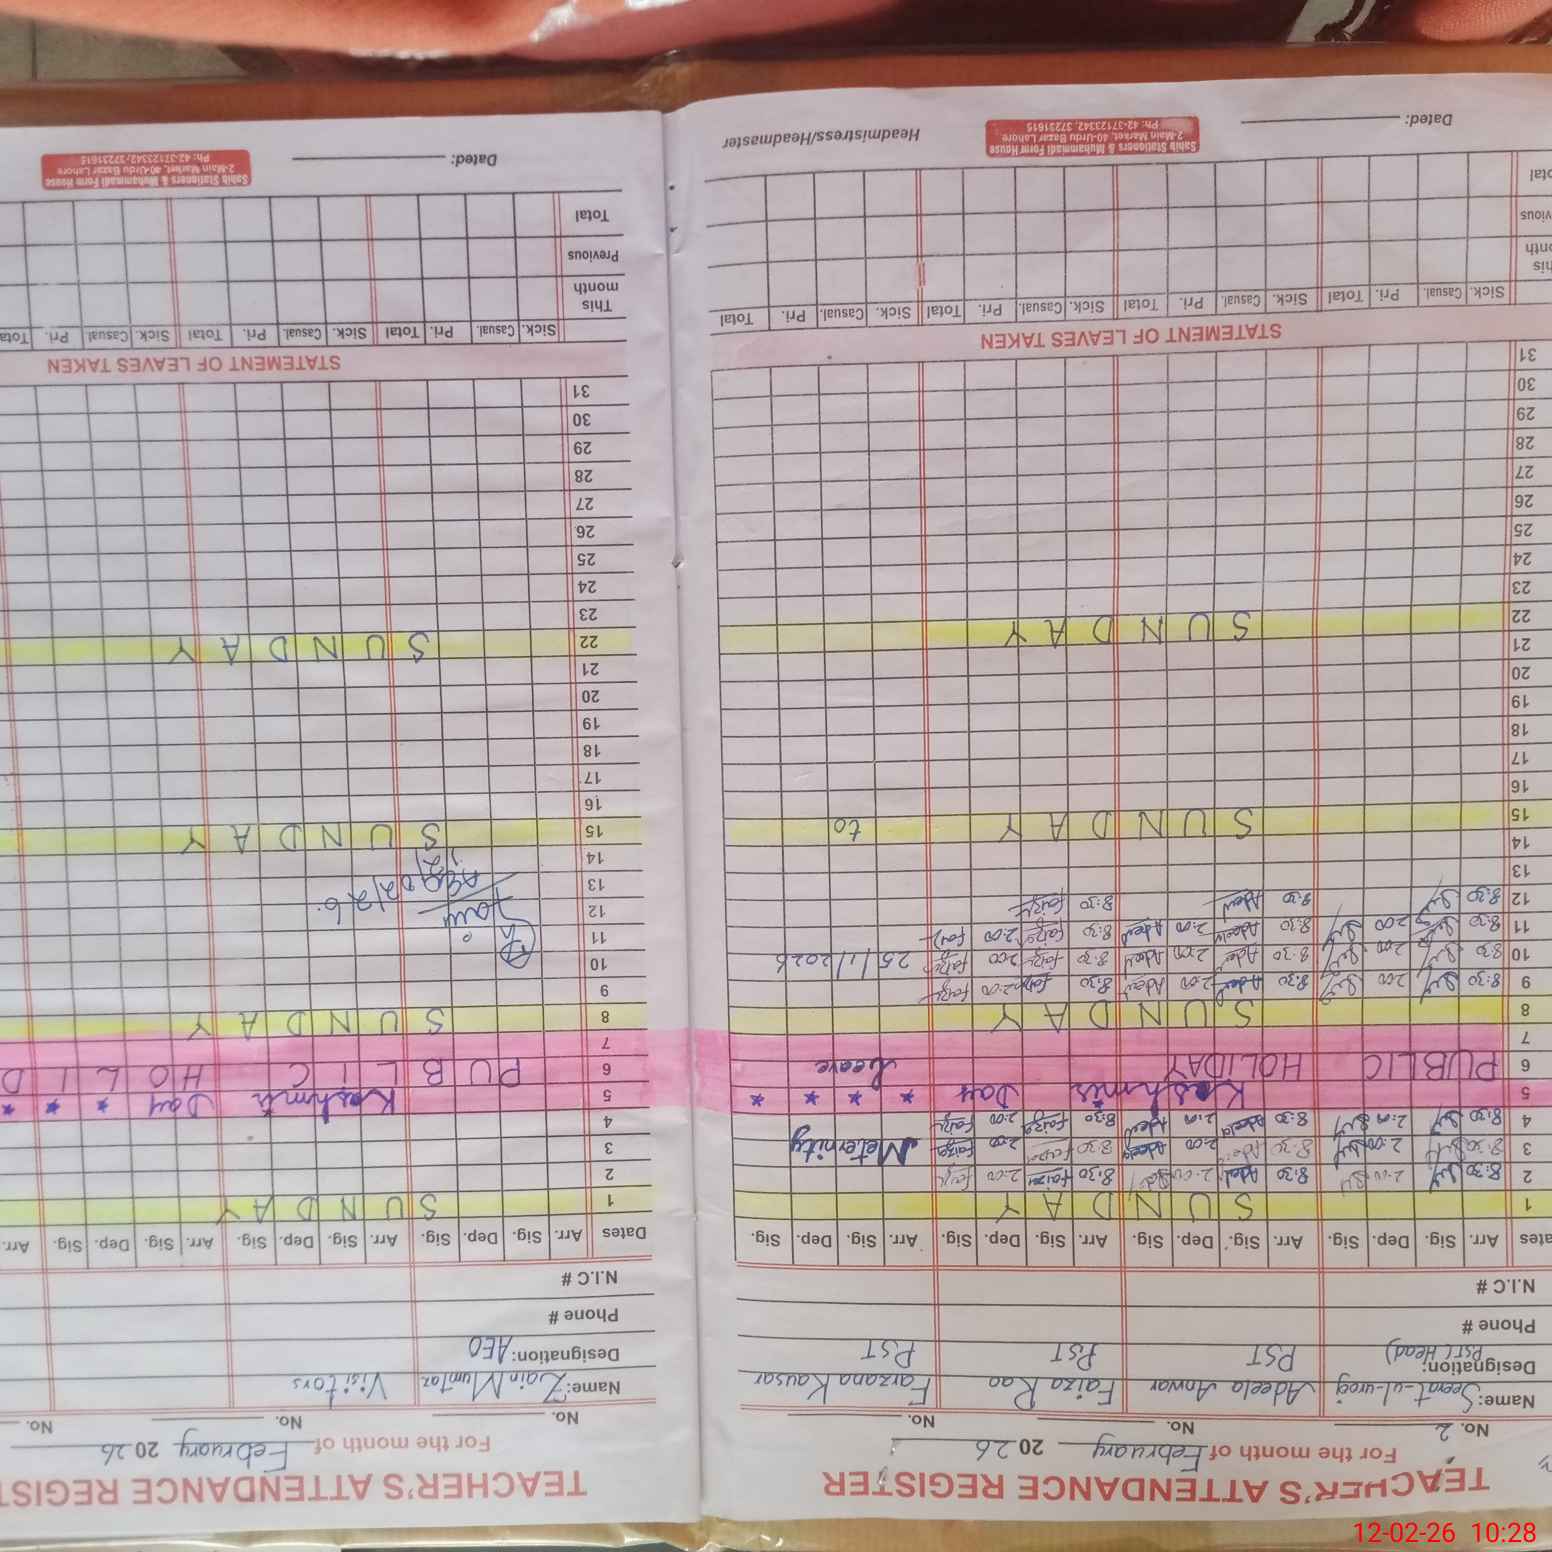 TEACHER'S ATTENDANCE REGISTER
For the month of February 2026
No. 2 No. No. No.
Name: Seerat-ul-urooj Adeela Anwar Faiza Rao Farzana Kausar
Designation: PST (Head) PST PST PST
Phone #
N.I.C #
ates Arr. Sig. Dep. Sig. Arr. Sig. Dep. Sig. Arr. Sig. Dep. Sig. Arr. Sig. Dep. Sig.
1 SUNDAY
2 8:30 2:00 8:30 Adeel 2:00 8:30 Faiza 2:00
3 8:30 2:00 8:30 2:00 Adeela 8:30 Faiza 2:00 Faiza Meternity
4 8:30 2:00 8:30 Adeela 2:00 8:30 Faiza 2:00
5 Kashmir Day * * * *
6 PUBLIC HOLIDAY Leave
7
8 SUNDAY
9 8:30 2:00 8:30 2:00 8:30 2:00
10 8:30 2:00 8:30 2:00 8:30 2:00 25/1/2026
11 8:30 2:00 8:30 Adeela 2:00 8:30 2:00
12 8:30 8:30 8:30
13
14
15 SUNDAY to
16
17
18
19
20
21
22 SUNDAY
23
24
25
26
27
28
29
30
31
STATEMENT OF LEAVES TAKEN
Sick. Casual. Pri. Total Sick. Casual. Pri. Total Sick. Casual. Pri. Total Sick. Casual. Pri. Total
his month
vious
otal
Dated:
Sahib Stationers & Muhammadi Form House
2-Main Market, 40-Urdu Bazar Lahore
Ph: 42-37123342, 37231615
Headmistress/Headmaster
TEACHER'S ATTENDANCE REGIST
For the month of February 2026
No. No. No.
Name: Zain Mumtaz Visitors
Designation: AEO
Phone #
N.I.C #
Dates Arr. Sig. Dep. Sig. Arr. Sig. Dep. Sig. Arr. Sig. Dep. Sig. Arr.
1 SUNDAY
2
3
4
5 Kashmir Day * * *
6 PUBLIC HOLID
7
8 SUNDAY
9
10
11
12
13
14
15 SUNDAY
16
17
18
19
20
21
22 SUNDAY
23
24
25
26
27
28
29
30
31
STATEMENT OF LEAVES TAKEN
Sick. Casual. Pri. Total Sick. Casual. Pri. Total Sick. Casual Pri. Tota
This month
Previous
Total
Dated:
Sahib Stationers & Muhammadi Form House
2-Main Market, 40-Urdu Bazar Lahore
Ph: 42-37123342, 37231615
12-02-26 10:28